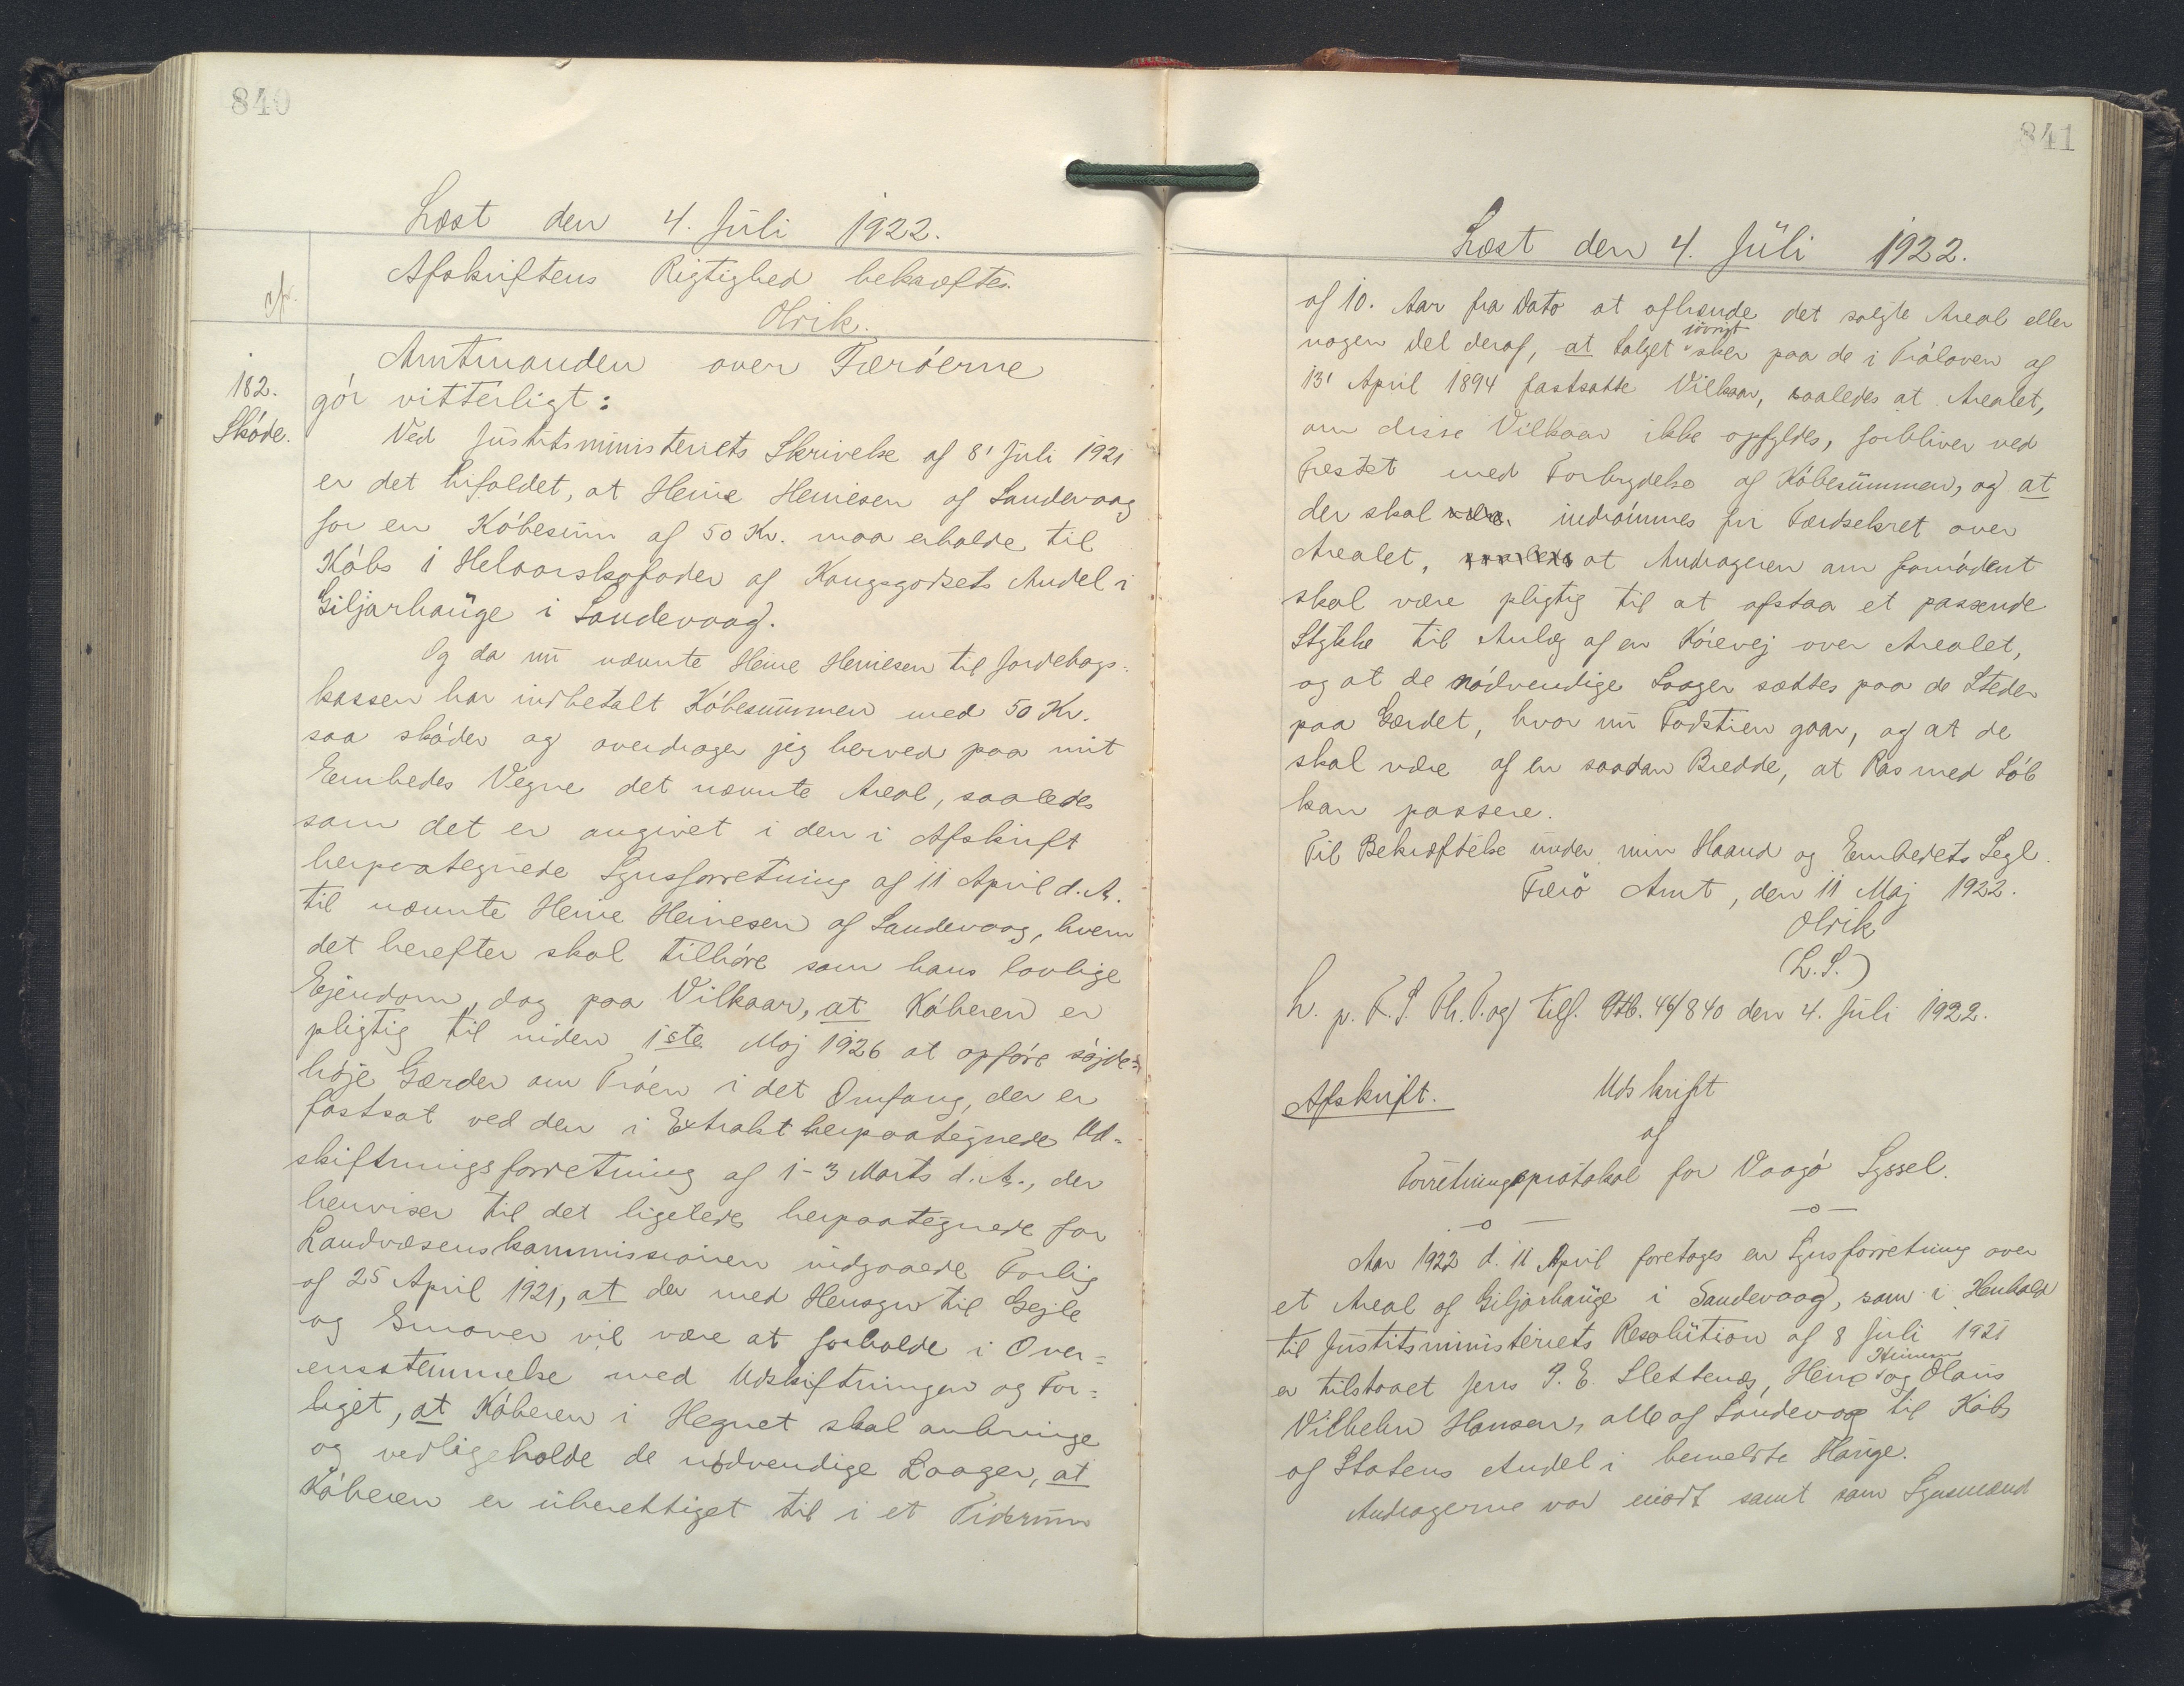 840
Læst den 4. Juli 1922.
Afskriftens Rigtighed bekræftes.
Olrik.
182.
Skøde.
Amtmanden over Færöerne
gör vitterligt:
Ved Justitsministeriets Skrivelse af 8' Juli 1921
er det bifaldet, at Heine Heinesen af Sandevaag
for en Købesum af 50 Kr. maa erholde til
Købs i Helaarskofoder af Kongsgodsets Andel i
Giljarhauge i Sandevaag.
Og da nu nævnte Heine Heinesen til Jordebogs-
kassen har indbetalt Købesummen med 50 Kr.
saa skøder og overdrager jeg herved paa mit
Eembedes Vegne det nævnte Areal, saaledes
som det er angivet i den i Afskrift
herpaategnede Synsforretning af 11 April d.A.
til nævnte Heine Heinesen af Sandevaag, hvem
det herefter skal tilhøre som hans lovlige
Ejendom, dog paa Vilkaar, at Køberen er
pligtig til inden 1ste Maj 1926 at opføre
høje Gærder om Trøen i det Omfang, der er
fastsat ved den i Extrakt herpaategnede Ud-
skiftningsforretning af 1-3 Marts d.A., der
henviser til det ligeledes herpaategnede for
Landvæsenskommissionen indgaaede Forlig
af 25 April 1921, at der med Hensyn til Gejle
og vil være at forholde i Over=
ensstemmelse med Udskiftningen og For=
liget, at Køberen i Hegnet skal anbringe
og vedligeholde de nødvendige Laager, at
Køberen er uberettiget til i et Tidsrum
841
Læst den 4. Juli 1922.
af 10. Aar fra Dato at afhænde det solgte Areal eller
nogen Del deraf, at Salget iøvrigt sker paa de i Tröloven af
13' April 1894 fastsatte Vilkaar, saaledes at Arealet,
om disse Vilkaar ikke opfyldes, forbliver ved
Fæstet med Forbrydelse af Købesummen, og at
der skal indrømmes fri Færdselsret over
Arealet, at Andrageren om fornødent
skal være pligtig til at afstaa et passende
Stykke til Anlæg af en Kørevej over Arealet,
og at de nødvendige Laager sættes paa de Steder
paa Gærdet, hvor nu Fodstien gaar, og at de
skal være af en saadan Bredde, at med Löb
kan passere.
Til Bekræftelse under min Haand og Eembedets Segl.
Færö Amt, den 11 Maj 1922.
Olrik
(L.S.)
L. p. F. S. Th. T. og tilf. Ptb. 46/840 den 4. Juli 1922.
Afskrift.
Udskrift
af
Forretningsprotokol for Vaagö Syssel.
—o—
—o—
Aar 1922 d. 11 April foretages en Synsforretning over
et Areal af Giljarhauge i Sandevaag, som i Henhold
til Justitsministeriets Resolution af 8 Juli 1921
er tilstaaet Jens P. E. Slettenæs, Heine Heinesen og Olaus
Vilhelm Hansen, alle af Sandevaag til Købs
af Statens Andel i bemeldte Hauge.
Andragerne var mødt samt som Synsmænd